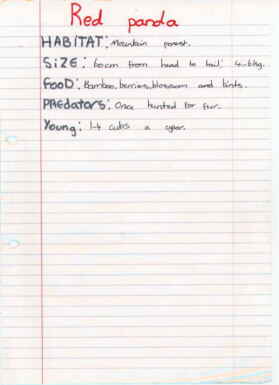 Red panda
HABITAT: Mountain forest.
SiZE: 60cm from head to tail; 4-6kg.
FooD: Bamboo, berries, blossom and
PREdators: Once hunted for fur.
Young: 1-4 cubs a